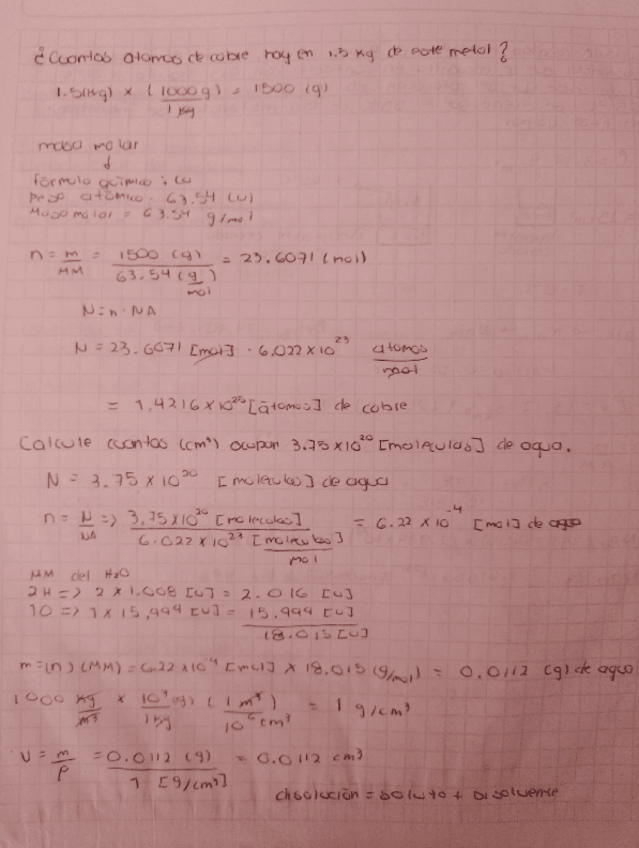 ¿Cuantos atomos de cobre hay en 1.5 kg de este metal?
1.5(kg) x (1000 g) = 1500 (g)
1 kg
masa molar
↓
Fórmula química : Cu
Peso atómico : 63.54 (u)
Masa molar = 63.54 g/mol
n = m/MM = 1500 (g) / 63.54 (g/mol) = 23.6071 (mol)
N = n · NA
N = 23.6071 [mol] · 6.022 x 10²³ atomos/mol
= 1,4216 x 10²⁵ [átomos] de cobre
Calcule cuantos (cm³) ocupan 3.75 x 10²⁰ [moleculas] de agua.
N = 3.75 x 10²⁰ [moleculas] de agua
n = N/NA => 3.75 x 10²⁰ [moleculas] / 6.022 x 10²³ [moleculas]/mol = 6.22 x 10⁻⁴ [mol] de agua
MM del H2O
2H => 2 x 1.008 [u] = 2.016 [u]
1O => 1 x 15,999 [u] = 15.999 [u]
18.015 [u]
m = (n) (MM) = 6.22 x 10⁻⁴ [mol] x 18,015 (g/mol) = 0.0112 (g) de agua
1000 kg/m³ x 10³ (g)/1 kg (1 m³)/10⁶ cm³ = 1 g/cm³
V = m/ρ = 0.0112 (g) / 1 [g/cm³] = 0.0112 cm³
disolución = soluto + Disolvente